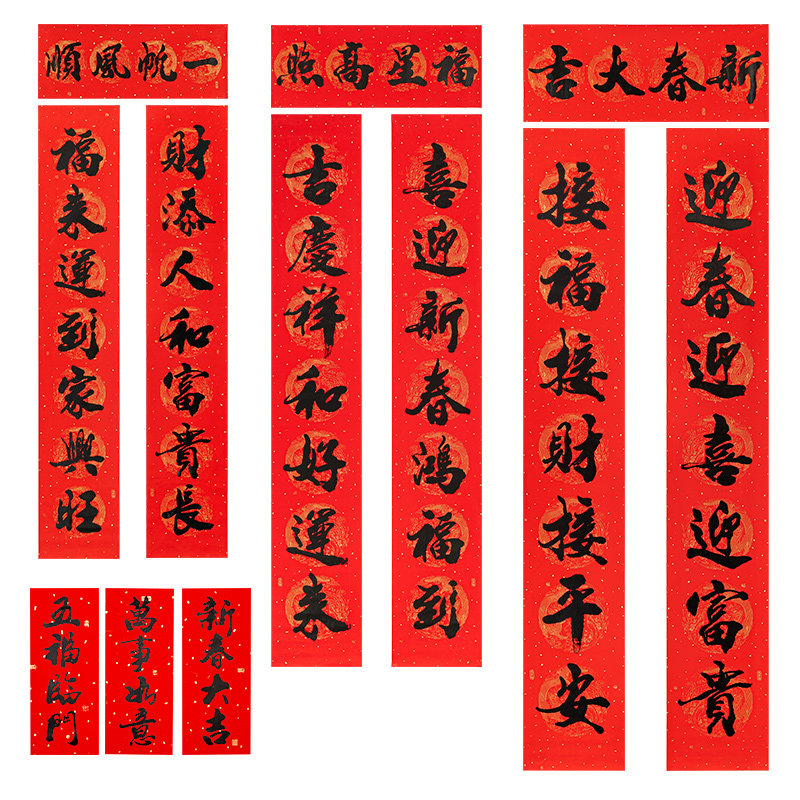 一帆風順
財添人和富貴長
福来運到家興旺
福星高照
喜迎新春鴻福到
吉慶祥和好運来
新春大吉
迎春迎喜迎富貴
接福接財接平安
新春大吉
萬事如意
五福臨門